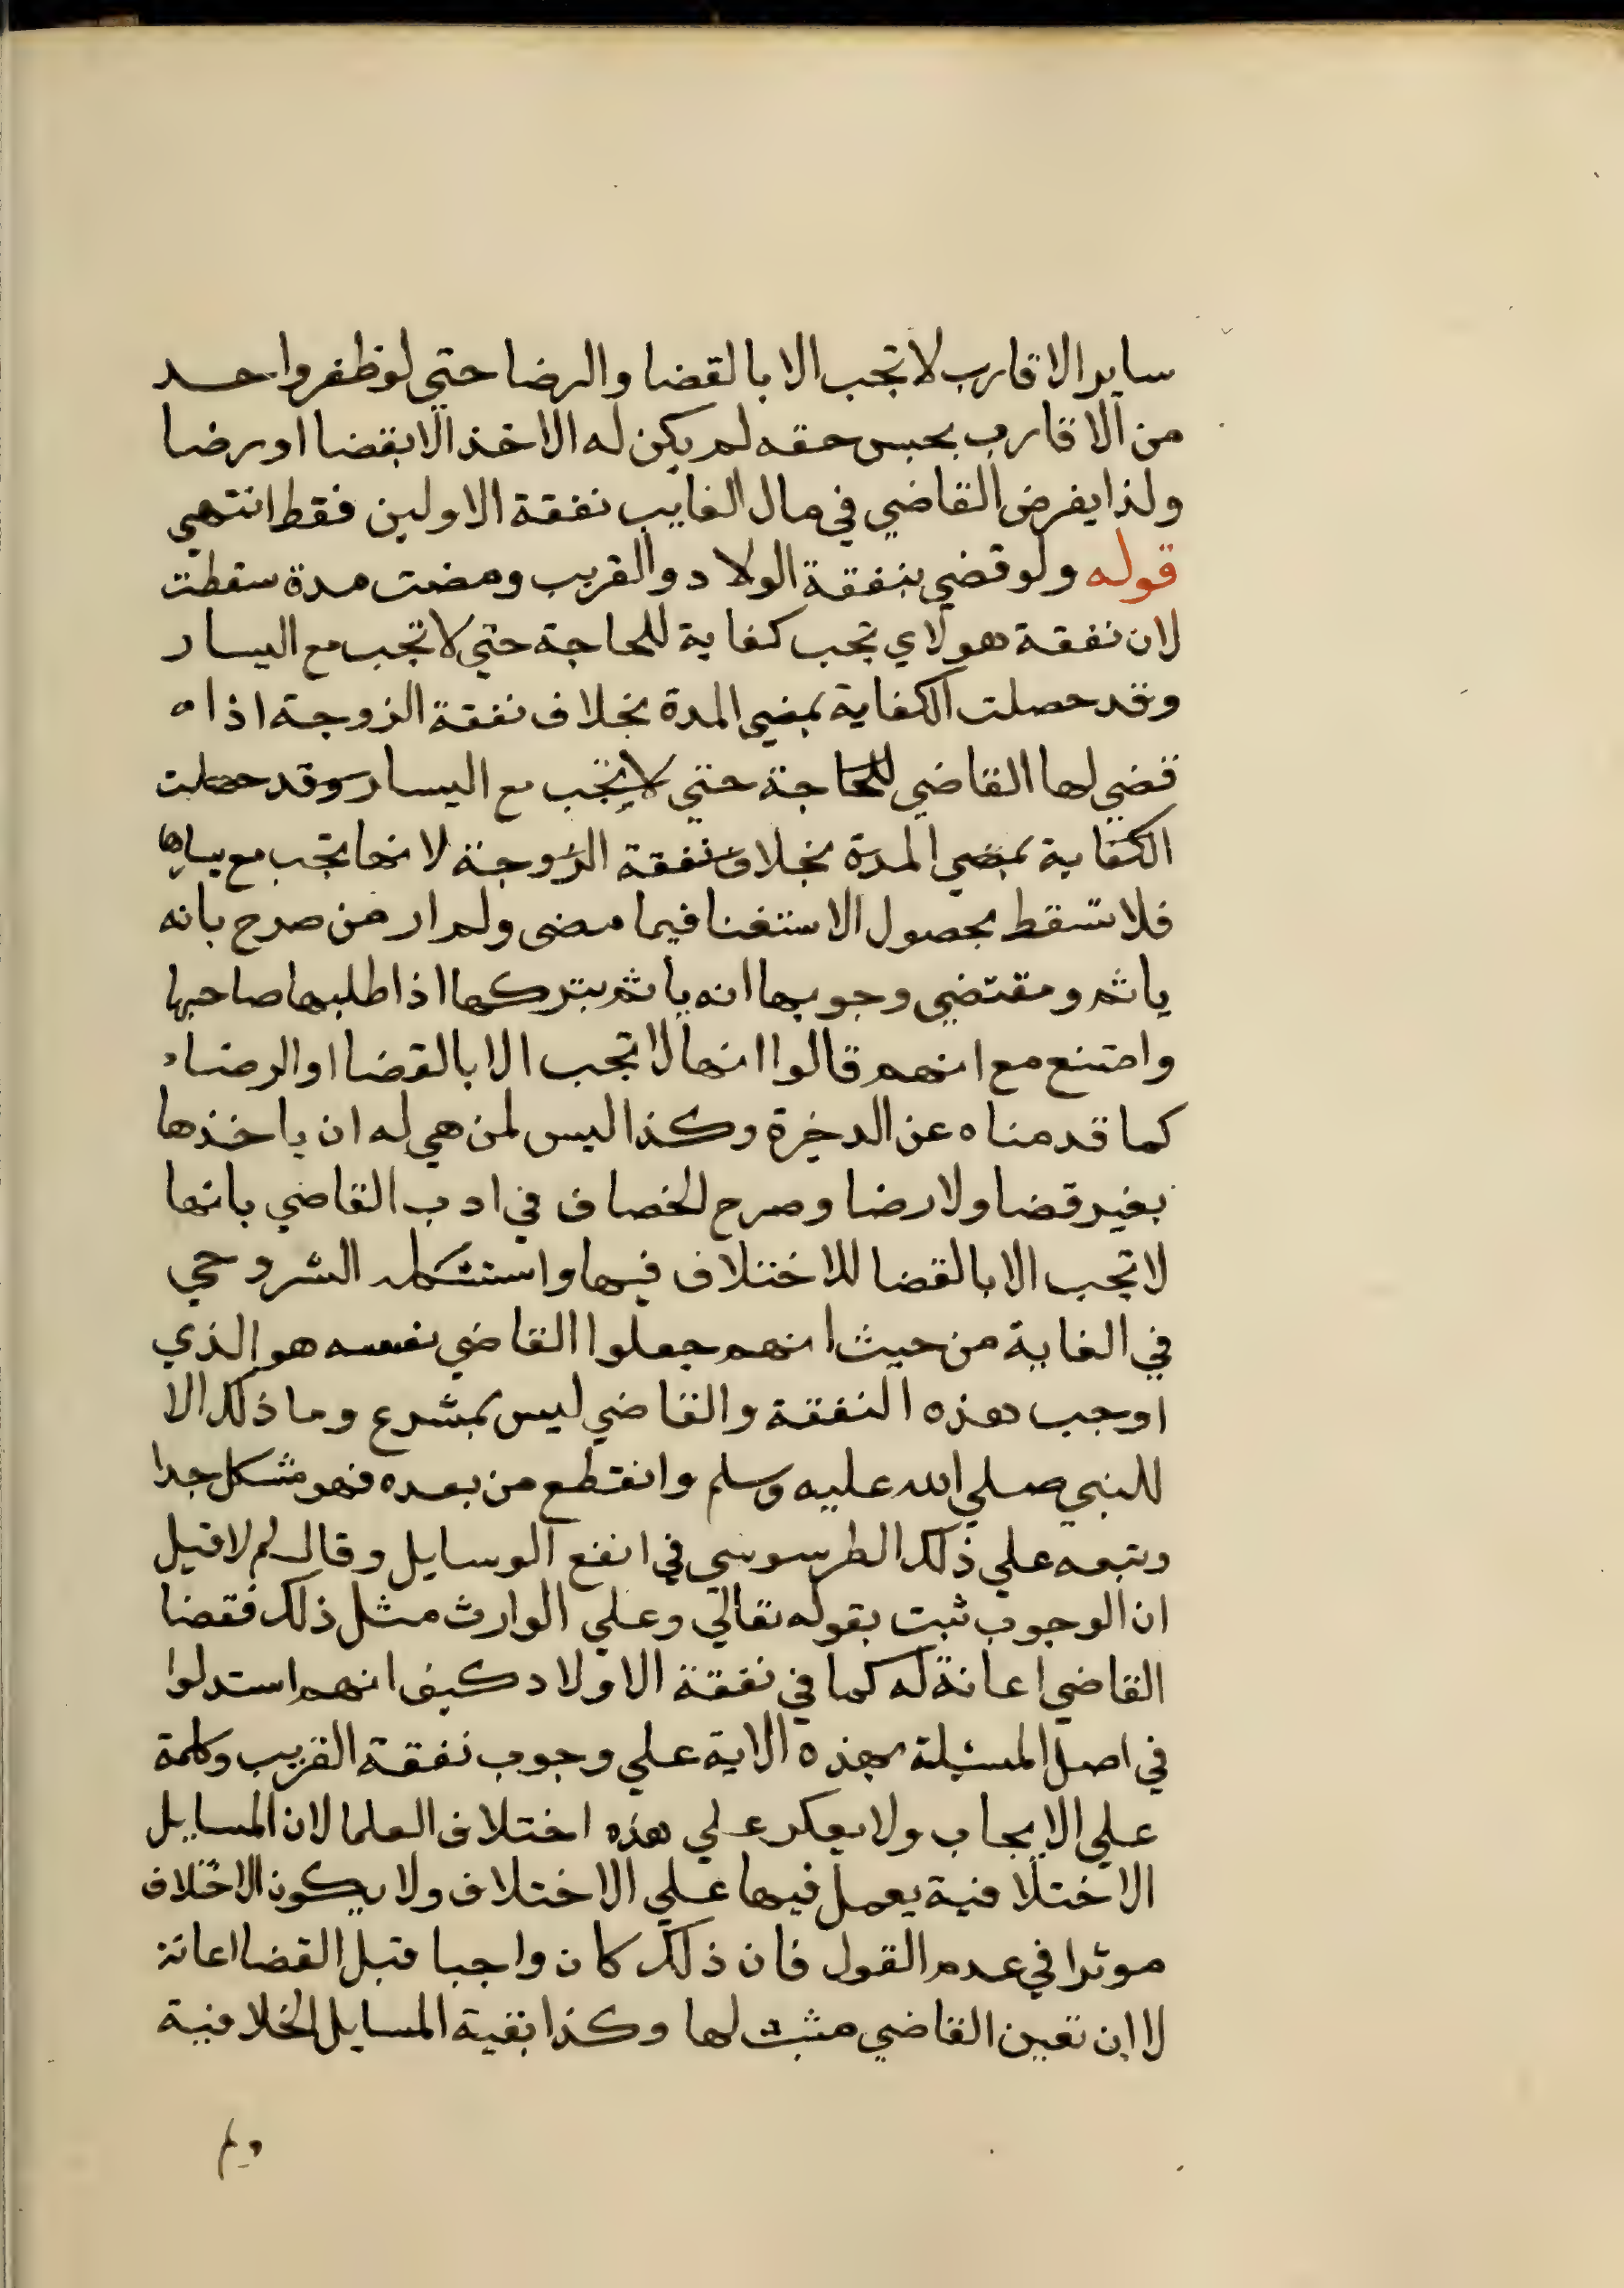 ساير الاقارب لا تجب الا بالقضا والرضا حتي لو ظفر واحد
من الاقارب بجبس حقه لم يكن له الاخذ الا بقضا او رضا
ولذا يفرض القاضي في مال الغايب نفقة الاولين فقط انتهي
قوله ولو قضي بنفقة الولاد والقريب ومضت مدة سقطت
لان نفقة هولاي تجب كفاية للحاجة حتي لا تجب مع اليسار
وقد حصلت الكفاية بمضي المدة بخلاف نفقة الزوجة اذا
قضي لها القاضي للحاجة حتي لا تجب مع اليسار وقد حصلت
الكفاية بمضي المدة بخلاف نفقة الزوجة لانها تجب مع يسارها
فلا تسقط بحصول الاستغنا فيما مضى ولم ار من صرح بانه
ياثم ومقتضي وجوبها انه ياثم بتركها اذا طلبها صاحبها
وامتنع مع انهم قالوا انها لا تجب الا بالقضا او الرضاء
كما قدمناه عن الدخيرة وكذا ليس لمن هي له ان ياخذها
بغير قضا ولا رضا وصرح الخصاف في ادب القاضي بانها
لا تجب الا بالقضا للاختلاف فيها واستشكله الشروحي
في الغاية من حيث انهم جعلوا القاضي نفسه هو الذي
اوجب هذه النفقة والقاضي ليس بمشرع وما ذلك الا
للنبي صلي الله عليه وسلم وانقطع من بعده فهو مشكل جدا
وتبعه علي ذلك الطرسوسي في انفع الوسايل وقال لم لا قيل
ان الوجوب ثبت بقوله تعالي وعلي الوارث مثل ذلك فقضا
القاضي اعانة له كما في نفقة الاولاد كيف انهم استدلوا
في اصل المسئلة بهذه الاية علي وجوب نفقة القريب وكلمة
علي الايجاب ولا يعكر علي هذه اختلاف العلما لان المسايل
الاختلافية يعمل فيها علي الاختلاف ولا يكون الاختلاف
موثرا في عدم القول فان ذلك كان واجبا قبل القضا اعانة
لا ان تعين القاضي مثبت لها وكذا بقية المسايل الخلافية
ولم